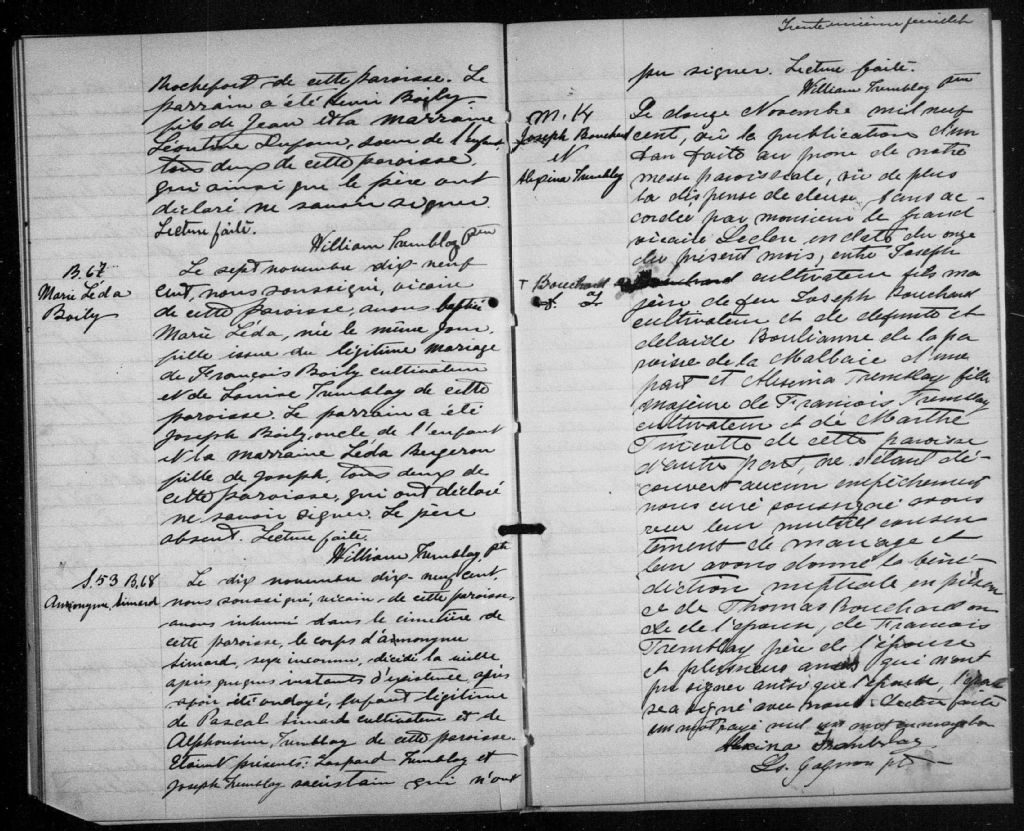 Rochefort de cette paroisse. Le
parrain a été Henri Boily
fils de Jean et la marraine
Léontine Dufour, soeur de l'enfant,
tous deux de cette paroisse,
qui ainsi que le père ont
déclaré ne savoir signer.
Lecture faite.
William Tremblay ptre
B. 67
Marie Léda
Boily
Le sept novembre dix neuf
cent, nous soussigné, vicaire
de cette paroisse, avons baptisé
Marie Léda, née le même jour,
fille issue du légitime mariage
de François Boily cultivateur
et de Louise Tremblay de cette
paroisse. Le parrain a été
Joseph Boily, oncle de l'enfant
et la marraine Léda Bergeron
fille de Joseph, tous deux de
cette paroisse, qui ont déclaré
ne savoir signer. Le père
absent. Lecture faite.
William Tremblay, ptr
S. 53 B. 68
Anonyme Simard
Le dix novembre dix-neuf cent,
nous soussigné, vicaire, de cette paroisse,
avons inhumé dans le cimetière de
cette paroisse, le corps d'anonyme
Simard, sexe inconnu, décédé la veille
après quelques instants d'existence, après
avoir été ondoyé, enfant légitime
de Pascal Simard cultivateur et de
Alphonsine Tremblay de cette paroisse.
Etaient présents: Léopard Tremblay et
Joseph Tremblay sacristain qui n'ont
Trente unième feuillet
pu signer. Lecture faite.
William Tremblay ptre
M. 14
Joseph Bouchard
et
Alexina Tremblay
Le douze Novembre mil neuf
cent, vu la publication d'un
ban faite au prone de notre
messe paroissiale, vu de plus
la dispense de deux bans ac-
cordée par monsieur le grand
vicaire Leclerc en date du onze
du présent mois, entre Joseph
+ Bouchard
cultivateur fils ma
jeur de feu Joseph Bouchard
cultivateur et de defunte
delaide Boulianne de la pa
roisse de la Malbaie d'une
part et Alexina Tremblay fille
majeure de Francois Tremblay
cultivateur et de Marthe
Turcotte de cette paroisse
d'autre part, ne s'étant dé-
couvert aucun empêchement
nous curé soussigné avons
recu leur mutuel consen
tement de mariage et
leur avons donné la béné
diction nuptiale en présen
ce de Thomas Bouchard on
cle de l'époux, de Francois
Tremblay père de l'épouse
et plusieurs amis qui n'ont
pu signer ainsi que l'époux, l'épouse
a signé avec nous. Lecture faite
un mot rayé nul un mot en marge bon
Alexina Tremblay
Ls. Gagnon ptr